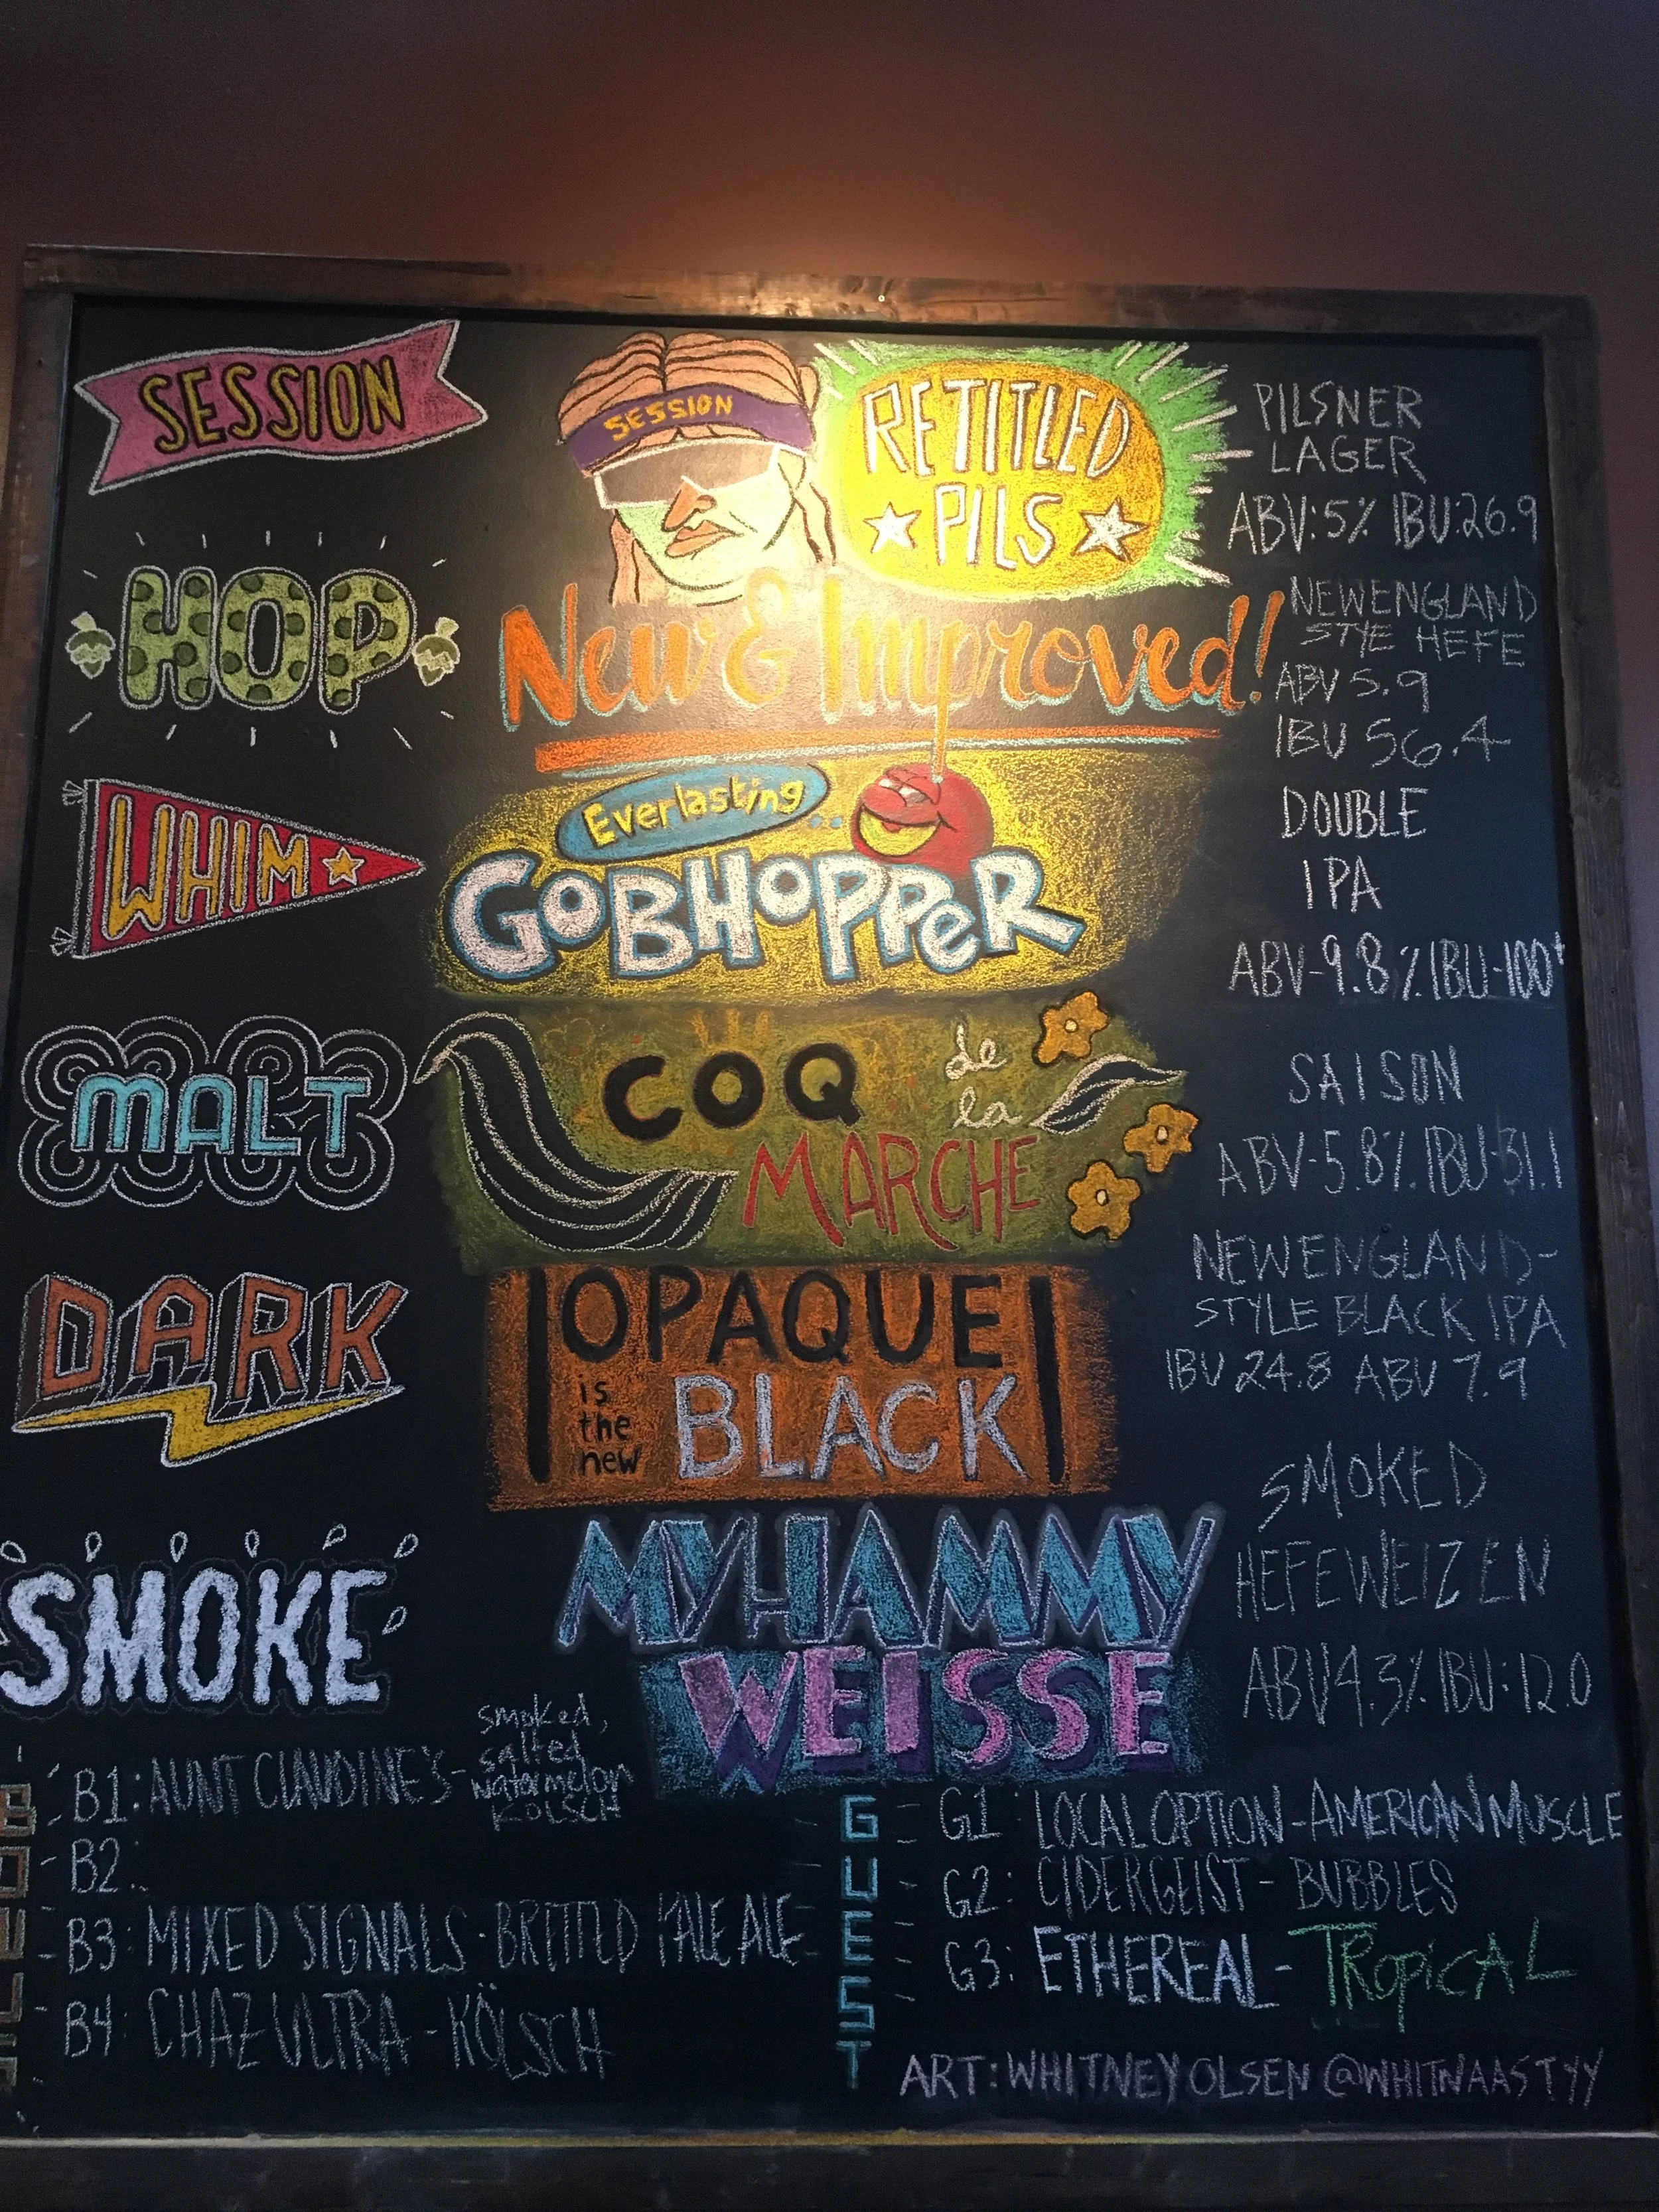 SESSION
SESSION
RETITLED
PILS
PILSNER
LAGER
ABV:5% IBU:26.9
HOP
New & Improved!
NEWENGLAND
STYE HEFE
ABV 5.9
IBU 56.4
WHIM
Everlasting
GOBHOPPER
DOUBLE
IPA
ABV-9.8% IBU-100+
MALT
COQ
de
la
MARCHE
SAISON
ABV-5.8% IBU-31.1
DARK
OPAQUE
is
the
new
BLACK
NEWENGLAND-
STYLE BLACK IPA
IBU 24.8 ABV 7.9
SMOKE
MYHAMMY
WEISSE
SMOKED
HEFEWEIZEN
ABV4.3% IBU:12.0
B1: AUNT CLAUDINE'S-
smoked,
salted
watermelon
KÖLSCH
B2:
B3: MIXED SIGNALS - BRETTED PALE ALE
B4: CHAZ ULTRA - KÖLSCH
GUEST
G1: LOCAL OPTION - AMERICAN MUSCLE
G2: CIDERGEIST - BUBBLES
G3: ETHEREAL - TROPICAL
ART: WHITNEY OLSEN @WHITNAASTYY